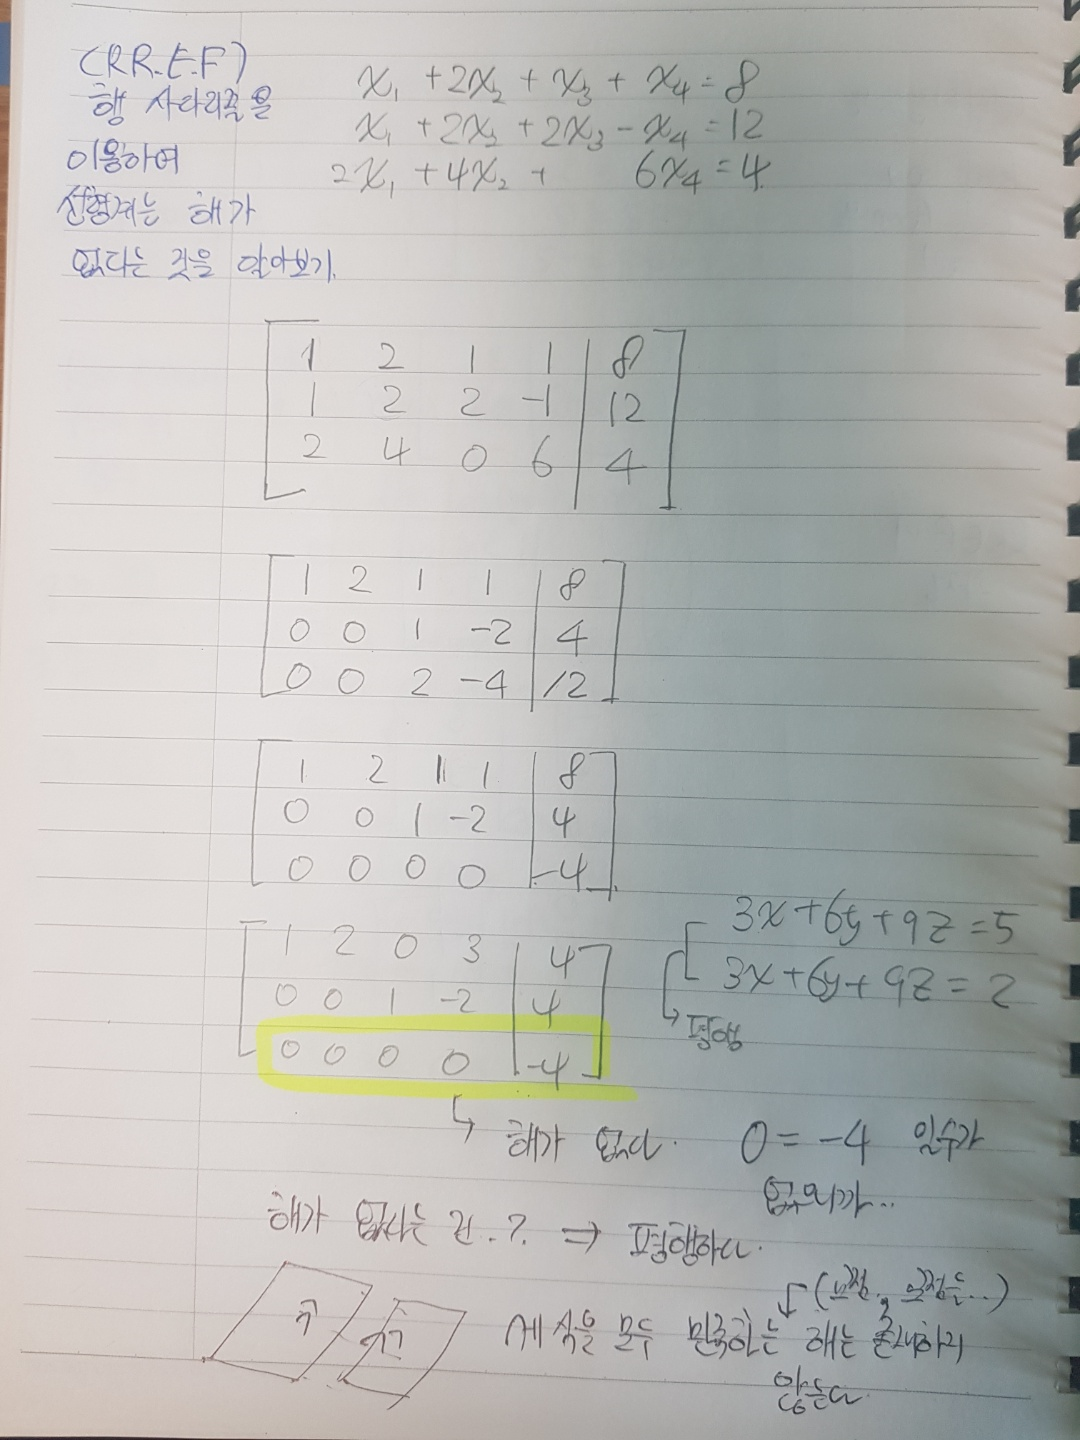 (R.R.E.F)
행 사다리꼴을
이용하여
선형계는 해가
없다는 것을 알아보기.
x₁ + 2x₂ + x₃ + x₄ = 8
x₁ + 2x₂ + 2x₃ - x₄ = 12
2x₁ + 4x₂ + 6x₄ = 4
1 2 1 1 | 8
1 2 2 -1 | 12
2 4 0 6 | 4
1 2 1 1 | 8
0 0 1 -2 | 4
0 0 2 -4 | 12
1 2 1 1 | 8
0 0 1 -2 | 4
0 0 0 0 | -4
1 2 0 3 | 4
0 0 1 -2 | 4
0 0 0 0 | -4
3x + 6y + 9z = 5
3x + 6y + 9z = 2
↳ 평행
↳ 해가 없다. 0 = -4 일수가
없으니까...
해가 없다는 건.? ⇒ 평행하다.
세 식을 모두 만족하는 해는 존재하지
않는다.